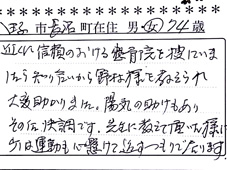 市長沼町在住 男・女 74歳
近くに信頼のおける整骨院を探していま
したら知り合いから野村様を教えられ
大変助かりました。陽気の助けもあり
その後快調です。先生に教えて頂いた様に
今日は運動も心懸けて近すつもりでおります